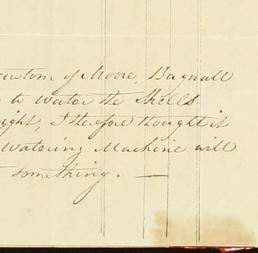 custom of Moore, Bagnall
to Water the Shells
ight, I therefore thought it
Watering Machine will
something. —